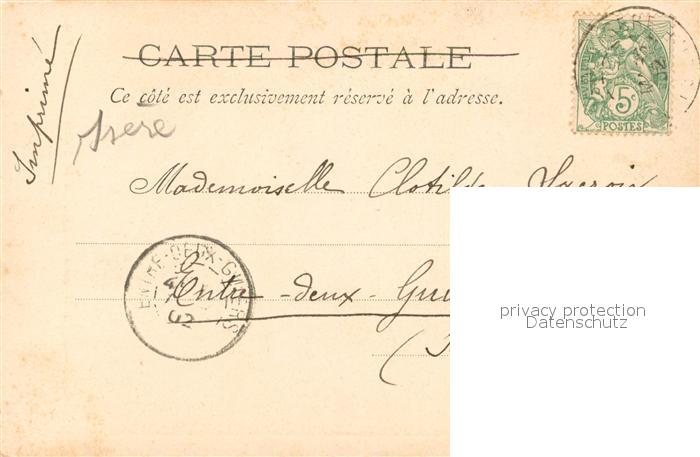 Imprimé
CARTE POSTALE
Ce côté est exclusivement réservé à l'adresse.
Isère
5c
POSTES
Mademoiselle Clotilde Lacroix
à
ENTRE-DEUX-GUIERS
02
Entre-deux-Gui
(I
privacy protection
Datenschutz